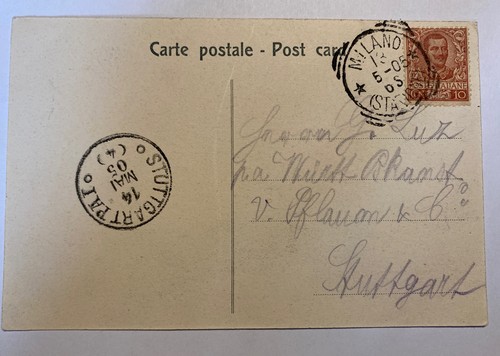 Carte postale - Post card
MILANO
13
5-05
(STAZ
POSTE ITALIANE
10
STUTTGART P.A.I
14
MAI
05
(4)
Herrn G. Lutz
p/a Württ
v. Pflaum & Co
Stuttgart